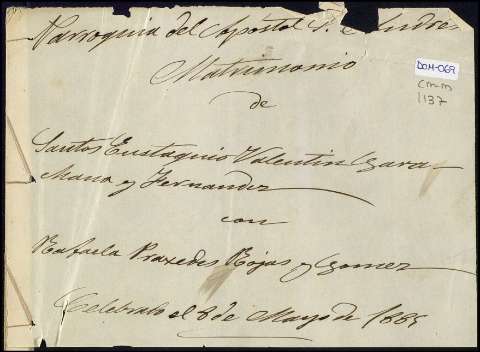 Parroquia del Apostol S. Andres
DOM-069
Cm-m
1137
Matrimonio
de
Santos Eustaquio Valentin Gara-
Mana y Fernandez
con
Rafaela Praxedis Rojas y Gomez
Celebrado el 8 de Mayo de 1885